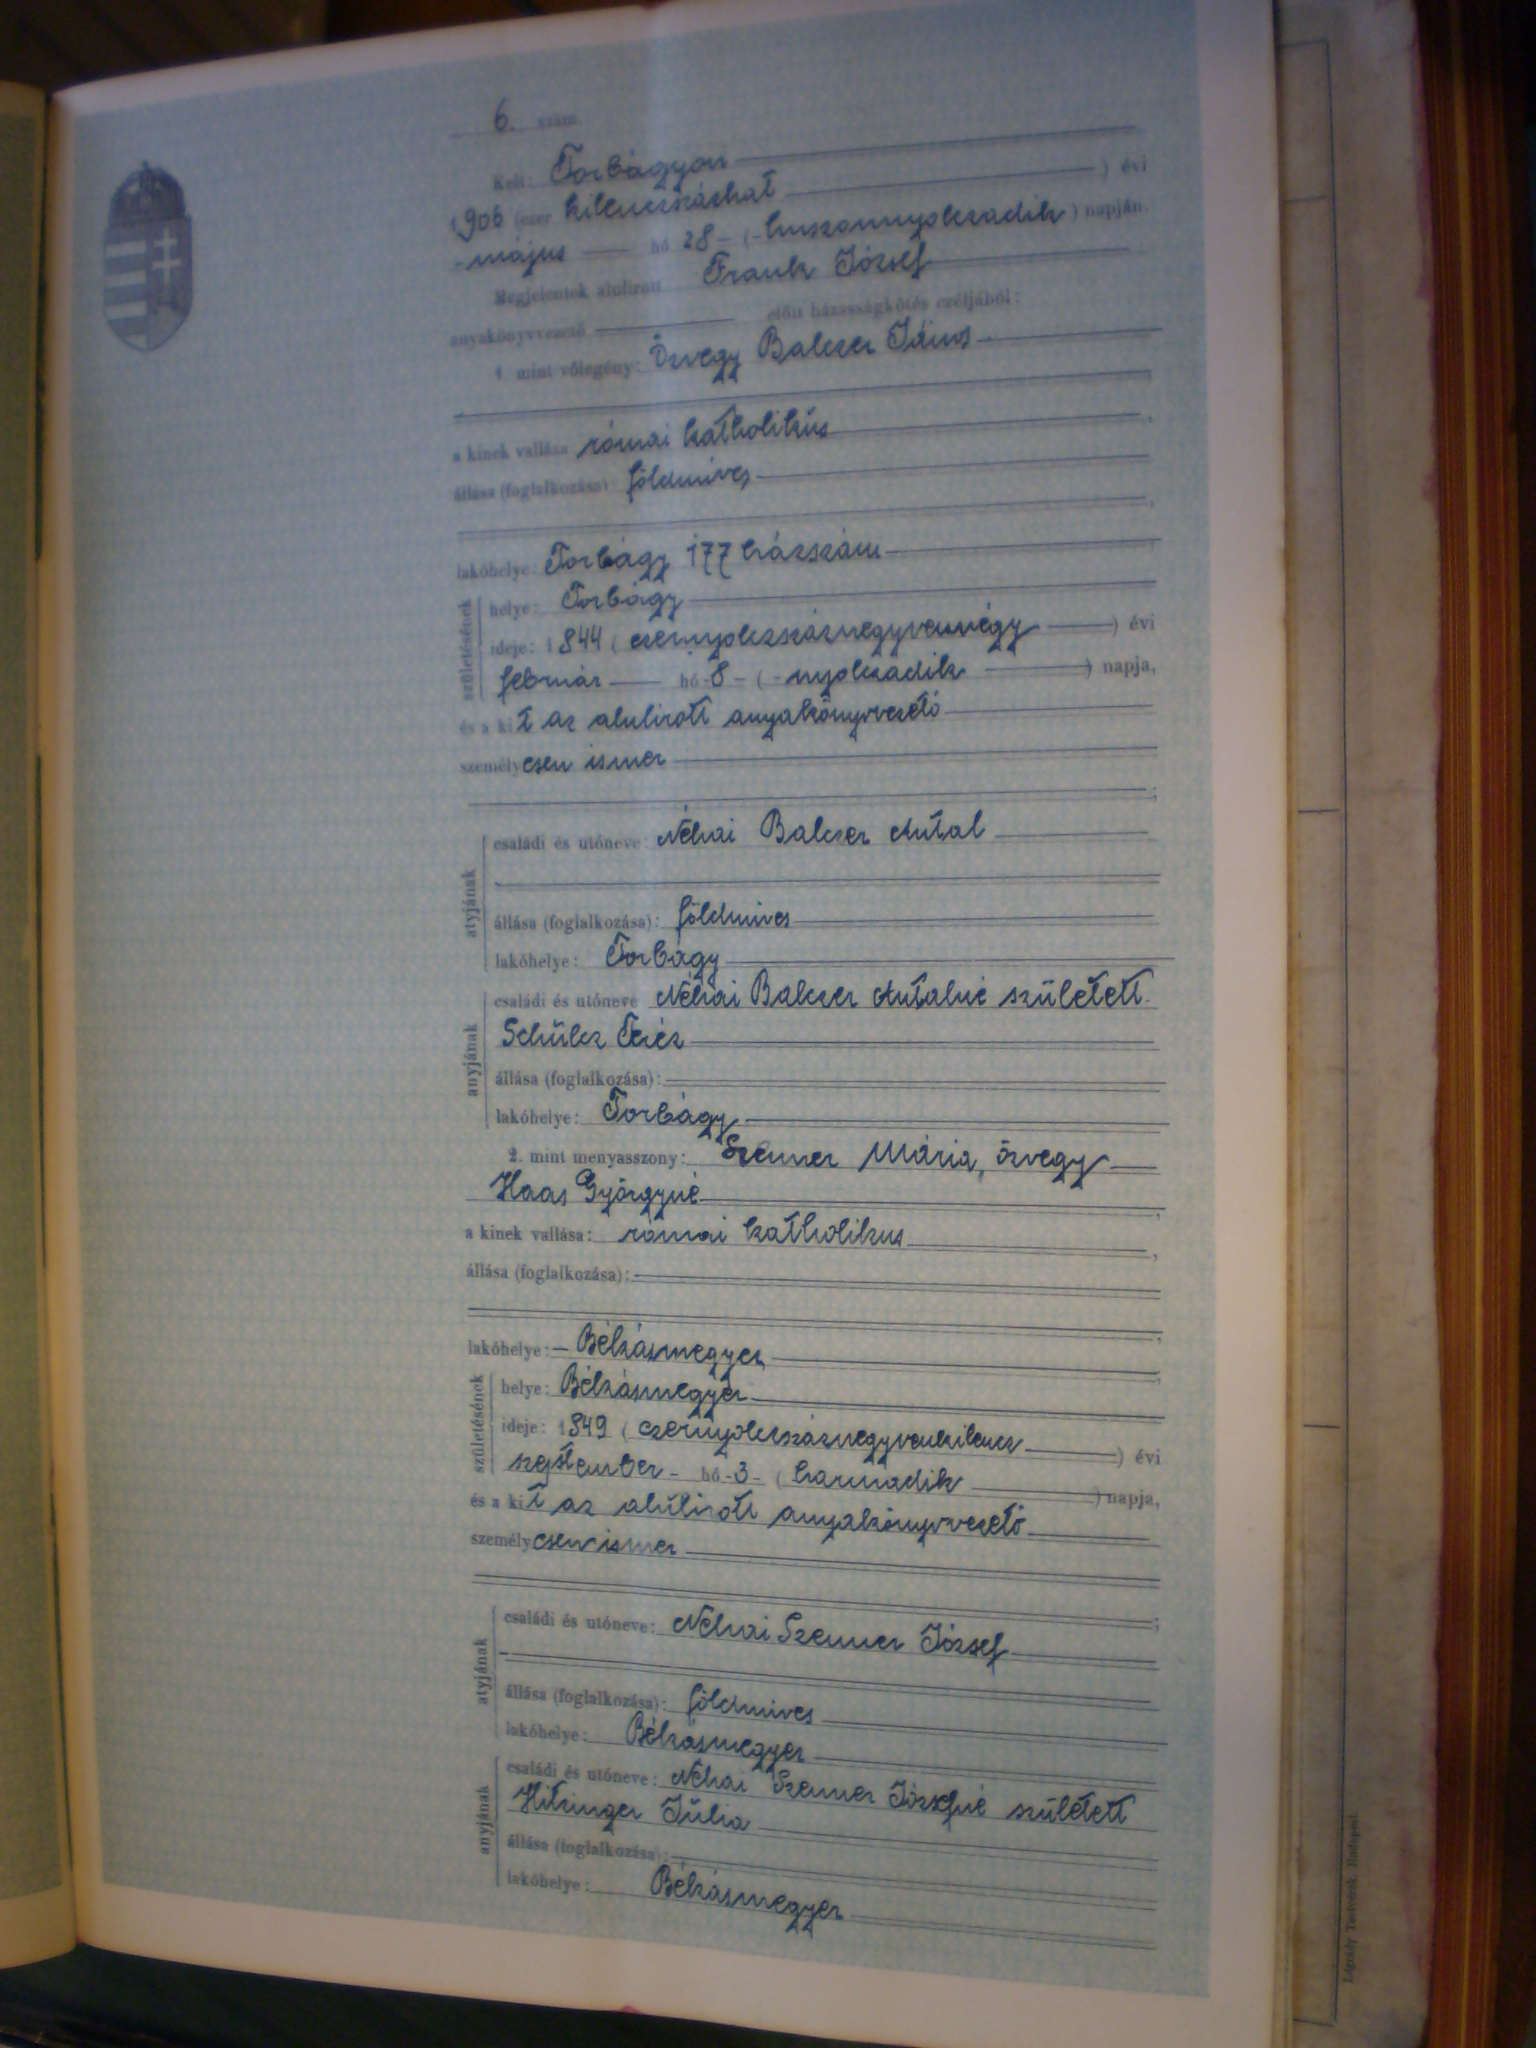 6. szám
Kelt: Torbágyon
1906 (ezer kilenczszázhat) évi
május hó 28 (huszonnyolczadik) napján.
Megjelentek alulirott Frank József
anyakönyvvezető előtt házasságkötés czéljából:
1 mint vőlegény: Özvegy Balczer János
a kinek vallása római katholikus
állása (foglalkozása) földmíves
lakóhelye: Torbágy 177 házszám
születésének
helye: Torbágy
ideje: 1844 (ezernyolczszáznegyvennégy) évi
február hó 8 (nyolczadik) napja,
és a kit az alulirott anyakönyvvezető
személyesen ismer ;
atyjának
családi és utóneve: Néhai Balczer Antal
állása (foglalkozása): földmíves
lakóhelye: Torbágy
anyjának
családi és utóneve Néhai Balczer Antalné született
Schülcz Teréz
állása (foglalkozása):
lakóhelye: Torbágy
2. mint menyasszony: Szenner Mária, özvegy
Haas Györgyné
a kinek vallása: római katholikus ,
állása (foglalkozása):
lakóhelye: Békásmegyer
születésének
helye: Békásmegyer
ideje: 1849 (ezernyolczszáznegyvenkilencz) évi
szeptember hó 3 (harmadik) napja,
és a kit az alulirott anyakönyvvezető
személyesen ismer ;
atyjának
családi és utóneve: Néhai Szenner József
állása (foglalkozása): földmives
lakóhelye: Békásmegyer
anyjának
családi és utóneve: Néhai Szenner Józsefné született
Hitzinger Júlia
állása (foglalkozása):
lakóhelye: Békásmegyer
Légrády Testvérek, Budapest.